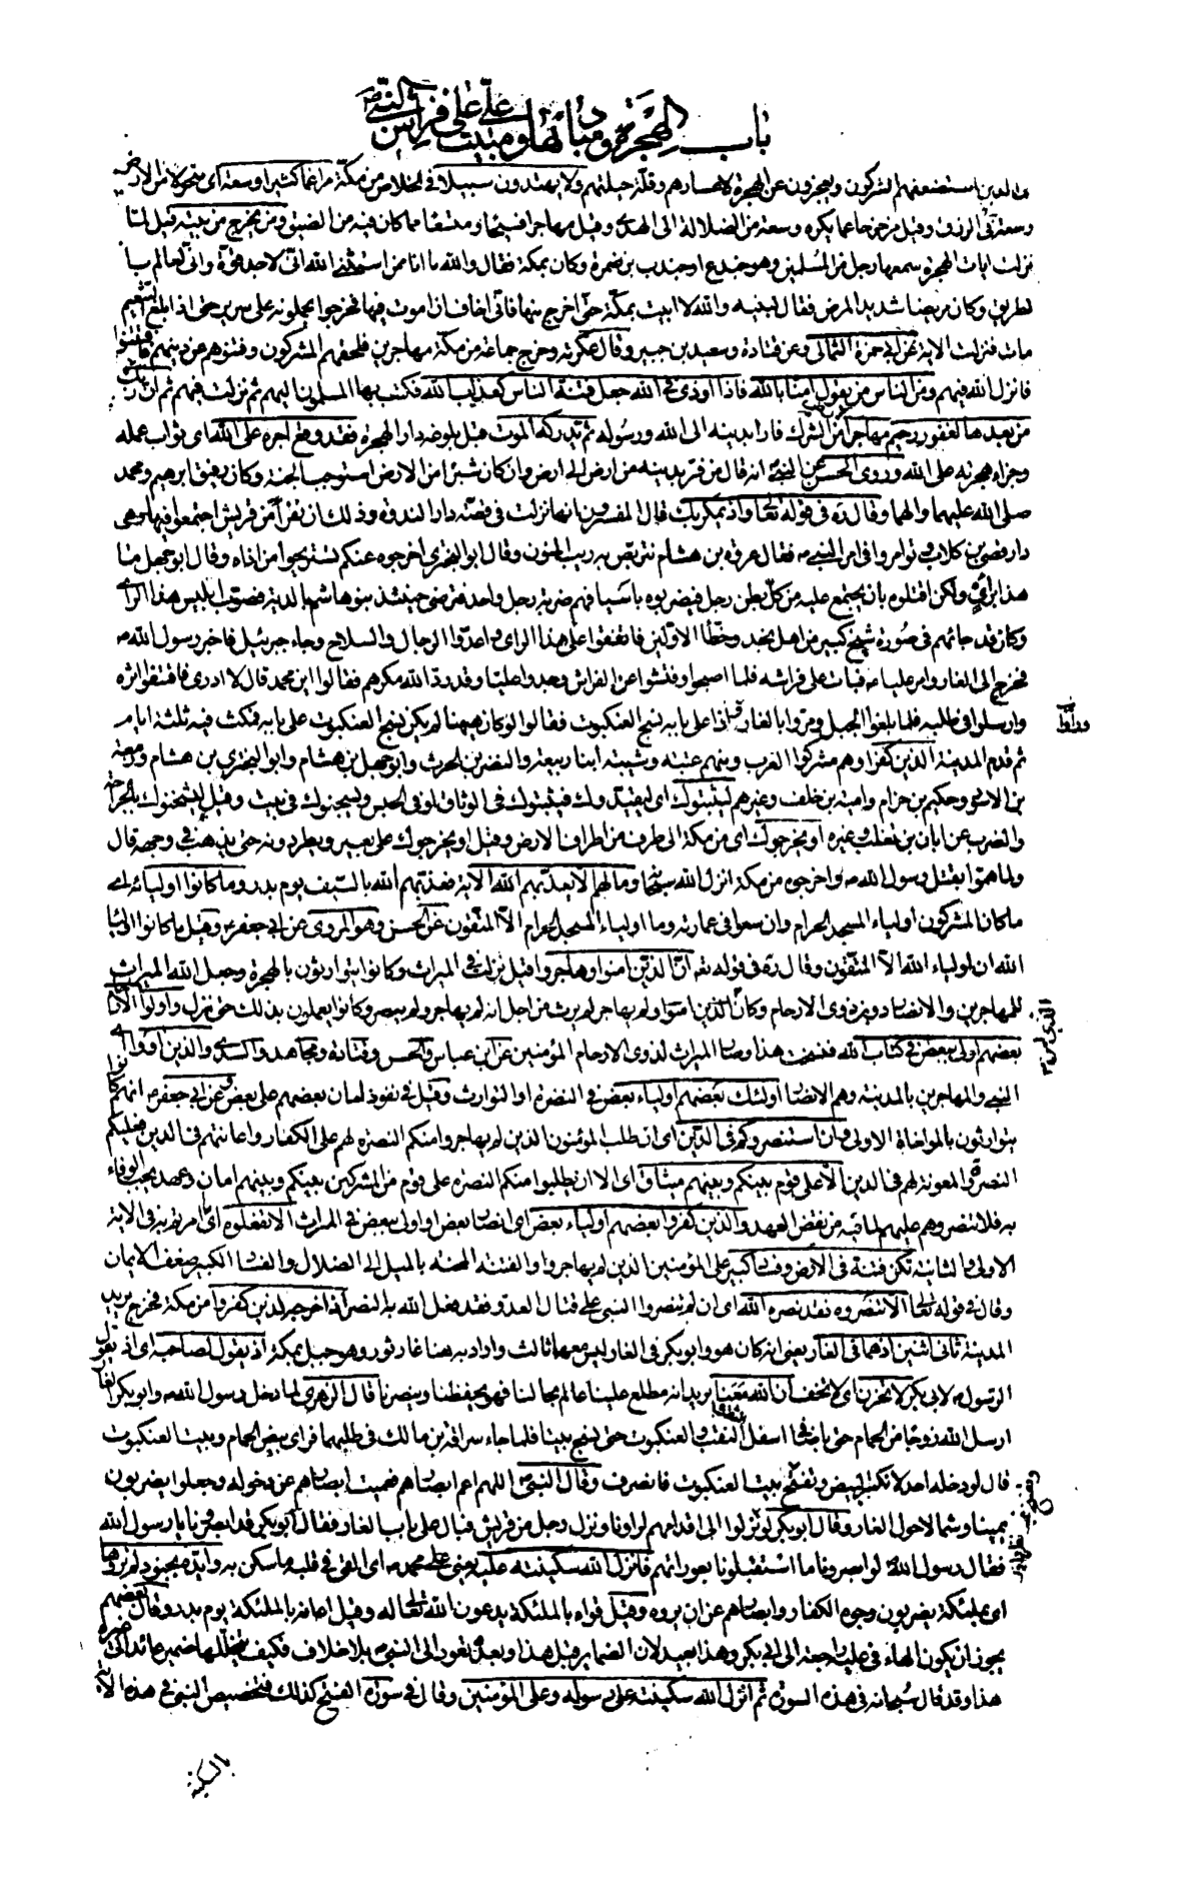 باب الهجرة ومباديها ومبيت علي على فراش النبي ص
اي الذين استضعفهم المشركون ويعجزون عن الهجرة لاعسارهم وقلة حيلتهم ولا يهتدون سبيلا في الخلاص من مكة مراغما كثيرا وسعة اي متحولا من الارض
وسعة في الرزق وقيل مزحزحا عما يكره وسعة من الضلالة الى الهدى وقيل مهاجرا فسيحا ومتسعا مما كان فيه من الضيق ومن يخرج من بيته قيل لما
نزلت ايات الهجرة سمعها رجل من المسلمين وهو جندع او جندب بن ضمرة وكان بمكة فقال والله ما انا ممن استثنى الله اني لاجد قوة واني لعالم با
لطريق وكان مريضا شديد المرض فقال لبنيه والله لا ابيت بمكة حتى اخرج منها فاني اخاف ان اموت فيها فخرجوا يحملونه على سرير حتى اذا بلغ التنعيم
مات فنزلت الاية عن ابي حمزة الثمالي وعن قتادة وسعيد بن جبير وقال عكرمة وخرج جماعة من مكة مهاجرين فلحقهم المشركون وفتنوهم عن دينهم فافتتنوا
فانزل الله فيهم ومن الناس من يقول امنا بالله فاذا اوذي في الله جعل فتنة الناس كعذاب الله فكتب بها المسلمون اليهم ثم نزلت فيهم ثم ان ربك
من بعدها لغفور رحيم مهاجرا من ارض الشرك فارا بدينه الى الله ورسوله ثم يدركه الموت قبل بلوغه دار الهجرة فقد وقع اجره على الله اي ثواب عمله
وجزاء هجرته على الله وروى الحسن عن النبي انه قال من فر بدينه من ارض الى ارض وان كان شبرا من الارض استوجب الجنة وكان رفيق ابرهيم ومحمد
صلى الله عليهما والهما وقال ره في قوله تعالى واذ يمكر بك قال المفسرون انها نزلت في قصة دار الندوة وذلك ان نفرا من قريش اجتمعوا فيها وهي
دار قصي بن كلاب وتوامروا في امر النبي ص فقال عروة بن هشام نتربص به ريب المنون وقال ابو البختري اخرجوه عنكم تستريحوا من اذاه وقال ابو جهل ما
هذا براي ولكن اقتلوه بان يجتمع عليه من كل بطن رجل فيضربوه باسيافهم ضربة رجل واحد فترضى حينئذ بنو هاشم بالدية فصوب ابليس هذا الراي
وكان قد جائهم في صورة شيخ كبير من اهل نجد وخطأ الاولين فاتفقوا على هذا الراي واعدوا الرجال والسلاح وجاء جبرئيل فاخبر رسول الله ص
فخرج الى الغار وامر عليا ع فبات على فراشه فلما اصبحوا وفتشوا عن الفراش وجدوا عليا وقد رد الله مكرهم فقالوا اين محمد قال لا ادري فاقتفوا اثره
وارسلوا في طلبه فلما بلغوا الجبل ومروا بالغار راوا على بابه نسج العنكبوت فقالوا لو كان ههنا لم يكن نسج العنكبوت على بابه فمكث فيه ثلثة ايام
ثم قدم المدينة الذين كفروا وهم مشركوا العرب ومنهم عتبة وشيبة ابنا ربيعة والنضر بن الحرث وابو جهل بن هشام وابو البختري بن هشام وزمعة
بن الاسود وحكيم بن حزام وامية بن خلف وغيرهم ليثبتوك اي ليقيدوك فيثبتوك في الوثاق او في الحبس ويسجنوك في بيت وقيل ليثخنوك بالجراحة
والضرب عن ابان بن تغلب وغيره او يخرجوك اي من مكة الى طرف من اطراف الارض وقيل او يخرجوك على بعير ويطردونه حتى يذهب في وجهه قال
ولما هموا بقتل رسول الله ص واخرجوه من مكة انزل الله سبحانه وما لهم الا يعذبهم الله الاية فعذبهم الله بالسيف يوم بدر وما كانوا اوليائه اي
ما كان المشركون اولياء المسجد الحرام وان سعوا في عمارته وما اولياء المسجد الحرام الا المتقون عن الحسن وهو المروي عن ابي جعفر ع وقيل ما كانوا اولياء
الله ان اولياء الله الا المتقون وقال ره في قوله تعالى ان الذين امنوا وهاجروا قيل نزلت في الميراث وكانوا يتوارثون بالهجرة وجعل الله الميراث
للمهاجرين والانصار دون ذوي الارحام وكان الذين امنوا ولم يهاجر لم يرث من اجل انه لم يهاجر ولم ينصر وكانوا يعملون بذلك حتى نزل واولوا الارحام
بعضهم اولى ببعض في كتاب الله فنسخت هذا وصار الميراث لذوي الارحام المؤمنين عن ابن عباس والحسن وقتادة ومجاهد والسدي والذين اووا اي
النبي والمهاجرين بالمدينة وهم الانصار اولئك بعضهم اولياء بعض في النصرة او التوارث وقيل في نفوذ امان بعضهم على بعض وعن ابي جعفر ع انهم كانوا
يتوارثون بالمواخاة الاولى وان استنصروكم في الدين اي ان طلب المؤمنون الذين لم يهاجروا منكم النصرة لهم على الكفار واعانتهم في الدين فعليكم
النصرة والمعونة لهم في الدين الا على قوم بينكم وبينهم ميثاق اي الا ان يطلبوا منكم النصرة على قوم من المشركين بينكم وبينهم امان وعهد يجب الوفاء
به فلا تنصروهم عليهم لما فيه من نقض العهد والذين كفروا بعضهم اولياء بعض اي انصار بعض او اولى ببعض في الميراث الا تفعلوه اي ما امرتم به في الاية
الاولى والثانية تكن فتنة في الارض وفساد كبير على المؤمنين الذين لم يهاجروا والفتنة المحنة بالميل الى الضلال والفساد الكبير ضعف الايمان
وقال في قوله تعالى الا تنصروه فقد نصره الله اي ان لم تنصروا النبي على قتال العدو فقد فعل الله به النصر اذ اخرجه الذين كفروا من مكة فخرج يريد
المدينة ثاني اثنين اذ هما في الغار يعني انه كان هو وابو بكر في الغار ليس معهما ثالث واراد به هنا غار ثور وهو جبل بمكة اذ يقول لصاحبه اي اذ يقول
الرسول ص لابي بكر لا تحزن اي لا تخف ان الله معنا يريد انه مطلع علينا عالم بحالنا فهو يحفظنا وينصرنا قال الزهري لما دخل رسول الله ص وابو بكر الغار
ارسل الله زوجا من الحمام حتى باضا في اسفل النقب والعنكبوت حتى نسج بيتا فلما جاء سراقة بن مالك في طلبهما فراى بيض الحمام وبيت العنكبوت
قال لو دخله احد لانكسر البيض وتفسخ بيت العنكبوت فانصرف وقال النبي ص اللهم اعم ابصارهم فعميت ابصارهم عن دخوله وجعلوا يضربون
يمينا وشمالا حول الغار وقال ابو بكر لو نزلوا الى اقدامهم لراونا ونزل رجل من قريش فبال على باب الغار فقال ابو بكر قد ابصرونا يا رسول الله
فقال رسول الله لو ابصرونا ما استقبلونا بعوراتهم فانزل الله سكينته عليه يعني على محمد ص اي القى في قلبه ما سكن به وايده بجنود لم تروها
اي بملئكة يضربون وجوه الكفار وابصارهم عن ان يروه وقيل قواه بالملئكة يدعون الله تعالى له وقيل اعانه بالملئكة يوم بدر وقال بعضهم
يجوز ان يكون الهاء في عليه راجعة الى ابي بكر وهذا بعيد لان الضمائر قبل هذا وبعده تعود الى النبي ص بلا خلاف فكيف يتخللها ضمير عائد الى غيره
هذا وقد قال سبحانه في هذه السورة ثم انزل الله سكينته على رسوله وعلى المؤمنين وقال في سورة الفتح كذلك فتخصيص النبي في هذه الاية
بالسكينة